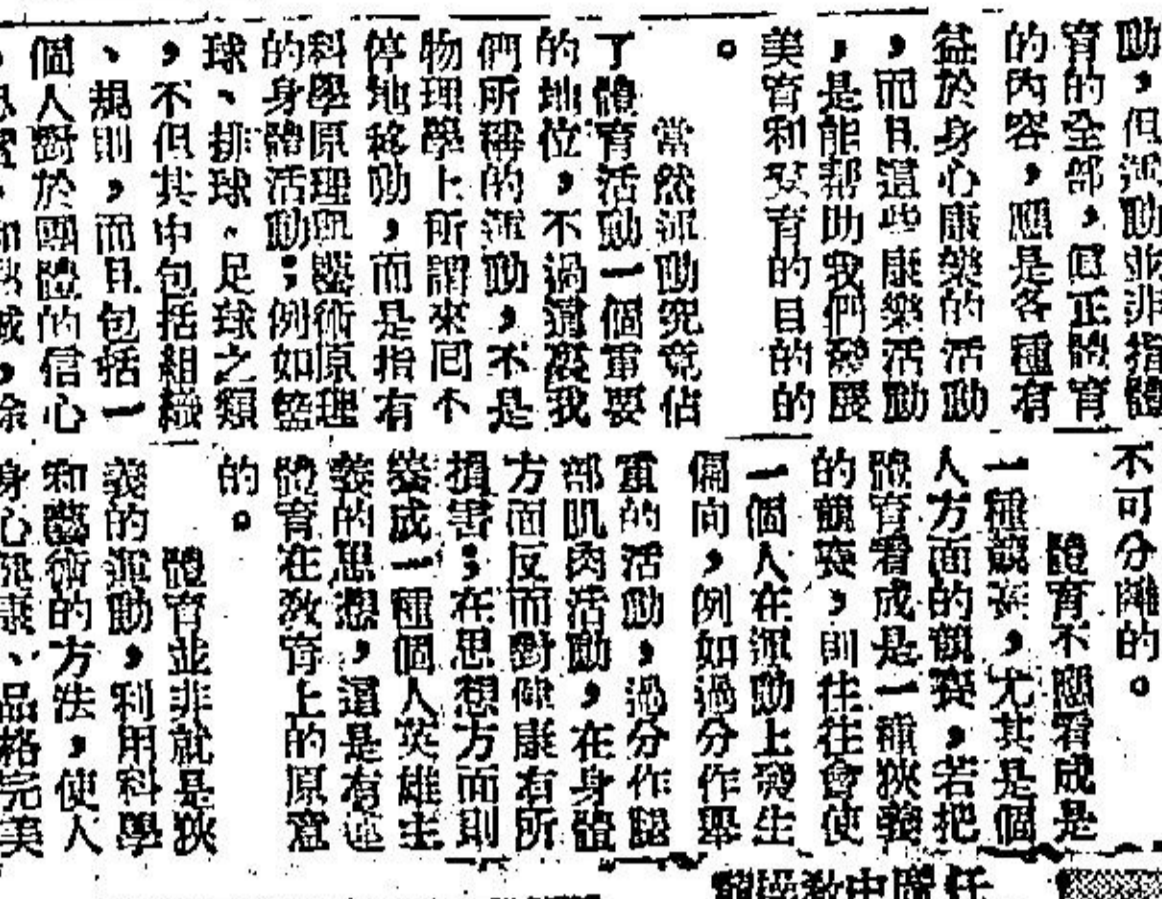 助，但運動並非指體
育的全部，眞正體育
的內容，應是各種有
益於身心康樂的活動
，而且這些康樂活動
，是能帮助我們發展
美育和羣育的目的的
。
當然運動究竟佔
了體育活動一個重要
的地位，不過這裏我
們所稱的運動，不是
物理學上所謂來囘不
停地移動，而是指有
科學原理與藝術原理
的身體活動；例如籃
球、排球、足球之類
，不但其中包括組織
、規則，而且包括一
個人對於團體的信心
不可分離的。
體育不應看成是
一種競賽，尤其是個
人方面的競賽，若把
體育看成是一種狹義
的競賽，則往往會使
一個人在運動上發生
偏向，例如過分作舉
重的活動，過分作腿
部肌肉活動，在身體
方面反而對健康有所
損害；在思想方面則
養成一種個人英雄主
義的思想，還是有違
體育在教育上的原意
的。
體育並非就是狹
義的運動，利用科學
和藝術的方法，使人
身心健康、品格完美